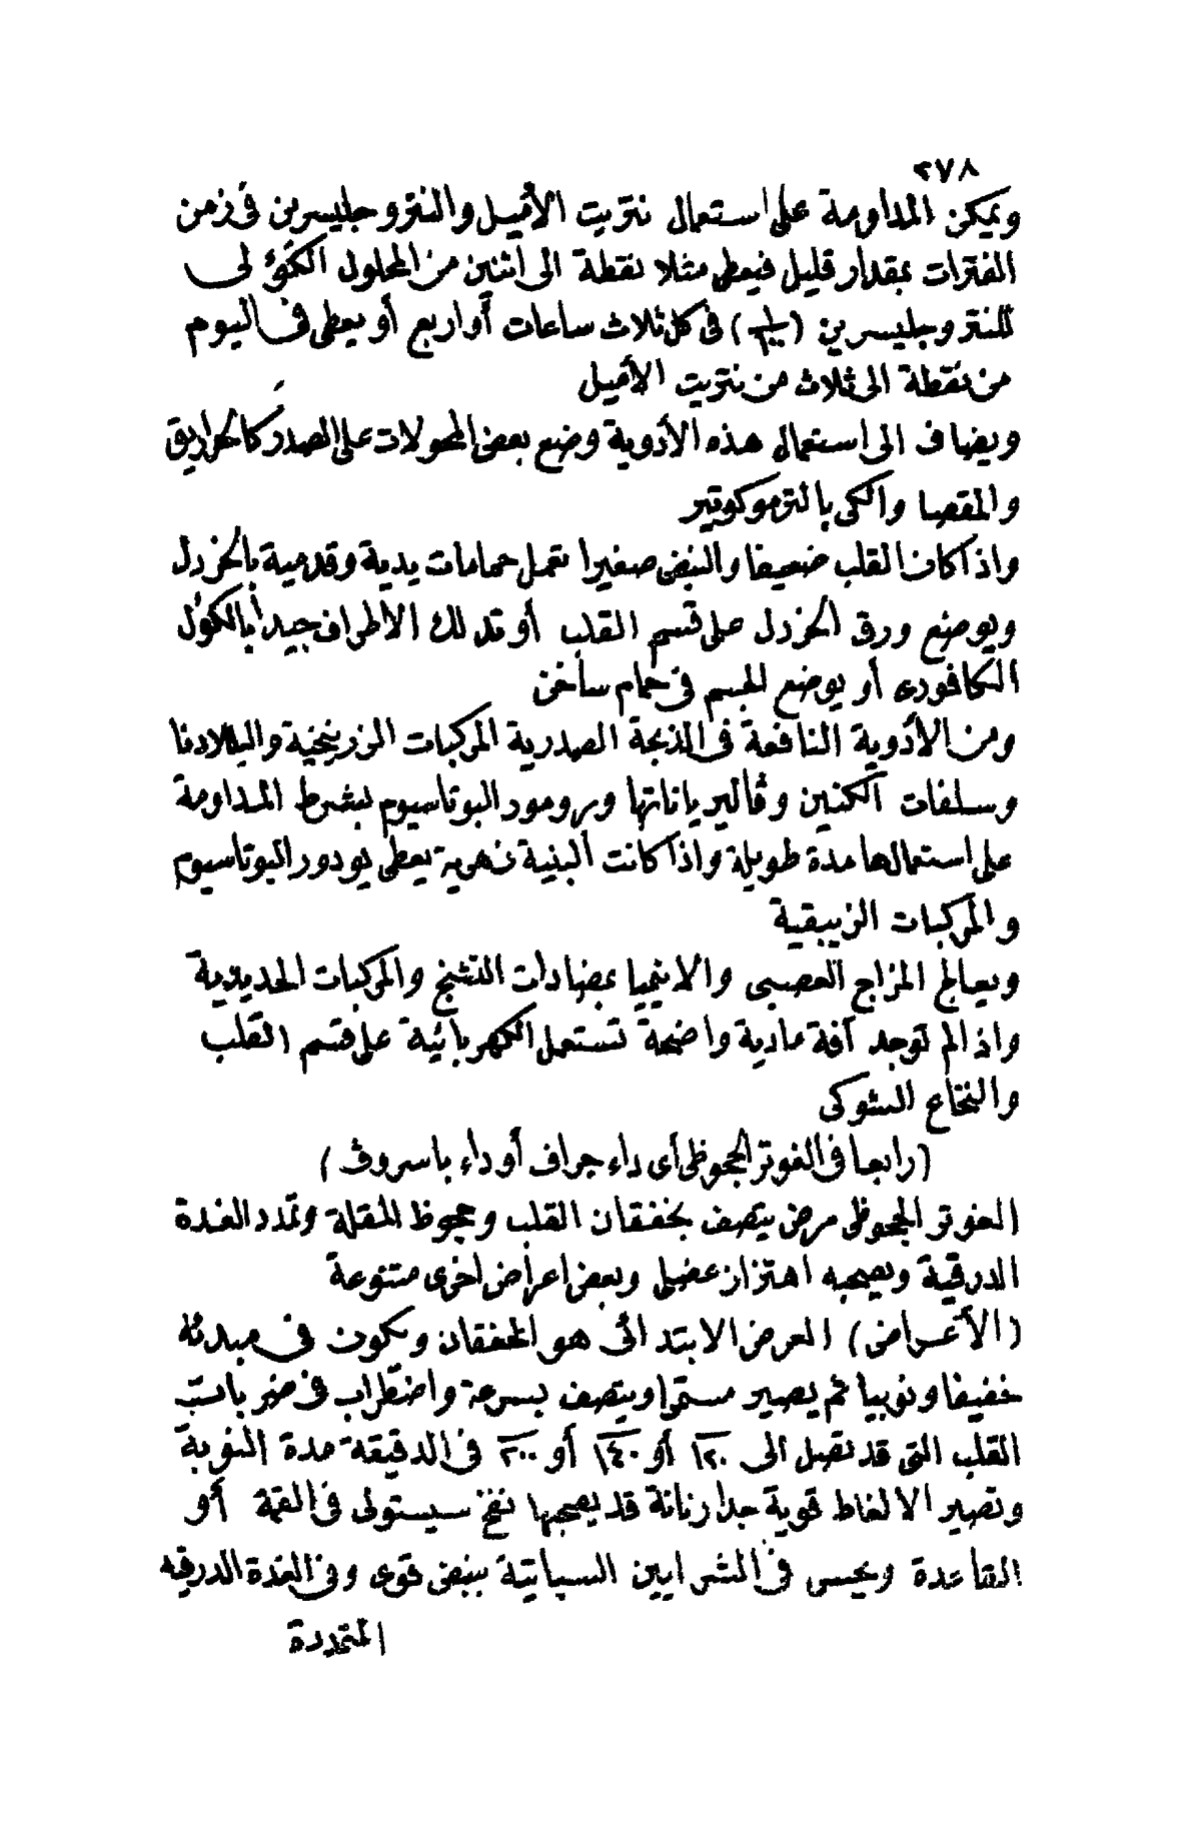 ٢٧٨
ويمكن المداومة على استعمال نتريت الأميل والنتروجليسرين فى زمن
الفترات بمقدار قليل فيعطى مثلا نقطة الى اثنين من المحلول الكؤلى
للنتروجليسرين ( ) فى كل ثلاث ساعات أو اربع أو يعطى فى اليوم
من نقطة الى ثلاث من نتريت الأميل
ويضاف الى استعمال هذه الأدوية وضع بعض المحولات على الصدر كالحراريق
والمقصا والكى بالترموكوتير
واذا كان القلب ضعيفا والنبض صغيرا تعمل حمامات يدية وقدمية بالخردل
ويوضع ورق الخردل على قسم القلب أو تدلك الأطراف جيدا بالكؤل
الكافورى أو يوضع الجسم فى حمام ساخن
ومن الأدوية النافعة فى الذبحة الصدرية المركبات الزرنيخية والبلادنا
وسلفات الكنين وڤاليرياناتها وبرومور البوتاسيوم بشرط المداومة
على استعمالها مدة طويلة واذا كانت البنية زهرية يعطى يودور البوتاسيوم
والمركبات الزيبقية
ويعالج المزاج العصبى والانيميا بمضادات التشنج والمركبات الحديدية
واذا لم توجد آفة مادية واضحة تستعمل الكهربائية على قسم القلب
والنخاع الشوكى
(رابعا فى الغوتر الجحوظى أى داء جراف أو داء باسروف)
الغوتر الجحوظى مرض يتصف بخفقان القلب وجحوظ المقلة وتمدد الغدة
الدرقية ويصحبه اهتزاز عضلى وبعض اعراض اخرى متنوعة
(الأعراض) العرض الابتدائى هو الخفقان ويكون فى مبدئه
خفيفا ونوبيا ثم يصير مستمرا ويتصف بسرعة واضطراب فى ضربات
القلب التى قد تصل الى ١٢٠ أو ١٤٠ أو ٢٠٠ فى الدقيقة مدة النوبة
وتصير الالغاط قوية جدا رنانة قد يصحبها نفخ سيستولى فى القمة أو
القاعدة ويحس فى الشرايين السباتية بنبض قوى وفى الغدة الدرقيه
المتمددة